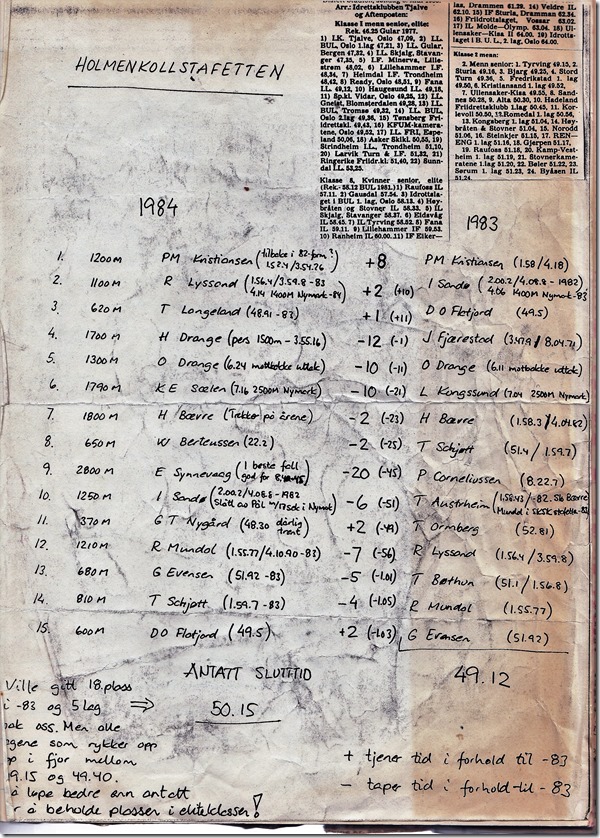 Arr.: Idrettsklubben Tjalve
og Aftenposten:
Klasse I menn senior, elite:
Rek. 46.25 Gular 1977.
1) I.K. Tjalve, Oslo 47,09, 2) IL.
BUL, Oslo 1.lag 47,21, 3) I.L. Gular,
Bergen 47,32, 4) I.L. Skjalg, Stavan-
ger 47,35, 5) I.F. Minerva, Lille-
strøm 48,02, 6) Lillehammer I.F.
48,34, 7) Heimdal I.F. Trondheim
48,42, 8) Ready, Oslo 48,51, 9) Fana
IL. 49,12, 10) Haugesund IL. 49,18,
11) Sp.kl. Vidar, Oslo 49,25, 12) I.L.
Gneist, Blomsterdalen 49,28, 13) I.L.
BUL, Tromsø 49,32, 14) I.L. BUL,
Oslo 2.lag 49,36, 15) Tønsberg Fri-
idrettskl. 49,43, 16) KFUM-kamera-
tene, Oslo 49,52, 17) I.L. FRI, Espe-
land 50,06, 18) Asker Skikl. 50,55, 19)
Strindheim I.L., Trondheim 51,10,
20) Larvik Turn & I.F. 51,32, 21)
Ringerike Friidr.kl. 51,40, 22) Sunn-
dal I.L. 53,25.
Klasse 8, Kvinner senior, elite
(Rek.-58.12 BUL 1981.) 1) Raufoss IL
57.11. 2) Gausdal 57.54. 3) Idrottsla-
get i BUL 1. lag, Oslo 58.13. 4) Høy-
bråten og Stovner IL 58.33. 5) IL
Skjalg, Stavanger 58.37. 6) Eidsvåg
IL 58.45. 7) IL Tyrving 58.52. 8) Fana
IL 59.11. 9) Lillehammer IF 59.53.
10) Ranheim IL 60.00. 11) IF Eiker—
laa, Drammen 61.29. 14) Veldre IL
62.10. 15) IF Sturla, Drammen 62.34.
16) Friidrottslaget, Vossar 63.02.
17) IL Molde—Olymp. 63.04. 18) Ul-
lensaker—Kisa IL 64.00. 19) Idrotts-
laget i B. U. L., 2. lag, Oslo 64.00.
Klasse 2 menn:
2. Menn senior: 1. Tyrving 49.15, 2.
Sturla 49.16, 3. Bjarg 49.25, 4. Stord
Turn 49.36, 5. Fredrikstad 1. lag
49.50, 6. Kristiansand 1. lag 49.52,
7. Ullensaker-Kisa 49.55, 8. Sand-
nes 50.28, 9. Alta 50.30, 10. Hadeland
Friidrettsklubb 1.lag 50.45, 11. Kor-
levoll 50.50, 12. Romedal 1. lag 50.56,
13. Kongsberg 1. lag 51.04, 14. Høy-
bråten & Stovner 51.04, 15. Norodd
51.06, 16. Steinkjer 51.15, 17. REN—
ENG 1. lag 51.16, 18. Gjerpen 51.17,
19. Raufoss 51.18, 20. Kamp-Vest-
heim 1. lag 51.19, 21. Stovnerkame-
ratene 1.lag 51.20, 22. Bøler 51.22, 23.
Sørum 1. lag 51.23, 24. Byåsen IL
51.24.
HOLMENKOLLSTAFETTEN
1984 1983
1. 1200M PM Kristiansen (tilbake i 82-form? 1.52.4/3.54.26) +8 PM Kristiansen (1.58/4.18)
2. 1100M R Lyssand (1.56.4/3.59.8 -83 4.14 1400M Nymark-84) +2 (+10) I Sandø (2.00.2/4.08.8 - 1982 4.06 1400M Nymark-83)
3. 620M T Longeland (48.91 - 83) +1 (+11) DO Flotjord (49.5)
4. 1700M H Drange (pers 1500m - 3.55.16) -12 (-1) J Fjærestad (3.47.9 / 8.04.71)
5. 1300M O Drange (6.24 mottbakke uttak) -10 (-11) O Drange (6.11 mottbakke uttak)
6. 1790M KE Sælen (7.16 2500M Nymark) -10 (-21) L Kongssund (7.04 2500M Nymark)
7. 1800M H Bævre (Trekker på årene) -2 (-23) H Bævre (1.58.3/4.04.62)
8. 650M W Berteussen (22.2) -2 (-25) T Schjøtt (51.4 / 1.59.7)
9. 2800M E Synnevaag (I beste fall god for 8.40-45) -20 (-45) P Corneliussen (8.22.7)
10. 1250M I Sandø (2.00.2/4.08.8 - 1982 Slått av Pål m/17sek i Nymark) -6 (-51) T Austrheim (1.58.43/-82. Slo Bævre/Mundal i SKSK stafetten-83)
11. 370M GT Nygård (48.30 dårlig trent) +2 (-49) T Ormberg (52.81)
12. 1210M R Mundal (1.55.77/4.10.90 -83) -7 (-56) R Lyssand (1.56.4 / 3.59.8)
13. 680M G Evensen (51.92 -83) -5 (-1.01) T Bøthun (51.1 / 1.56.8)
14. 810M T Schjøtt (1.59.7 -83) -4 (-1.05) R Mundal (1.55.77)
15. 600M DO Flotjord (49.5) +2 (-1.03) G Evensen (51.92)
ANTATT SLUTTTID 49.12
50.15
Ville gitt 18.plass
i -83 og 5 lag
bak oss. Men alle
som rykker opp
i fjor mellom
9.15 og 49.40.
å løpe bedre enn antatt
å beholde plassen i eliteklassen!
+ tjener tid i forhold til -83
- taper tid i forhold til -83